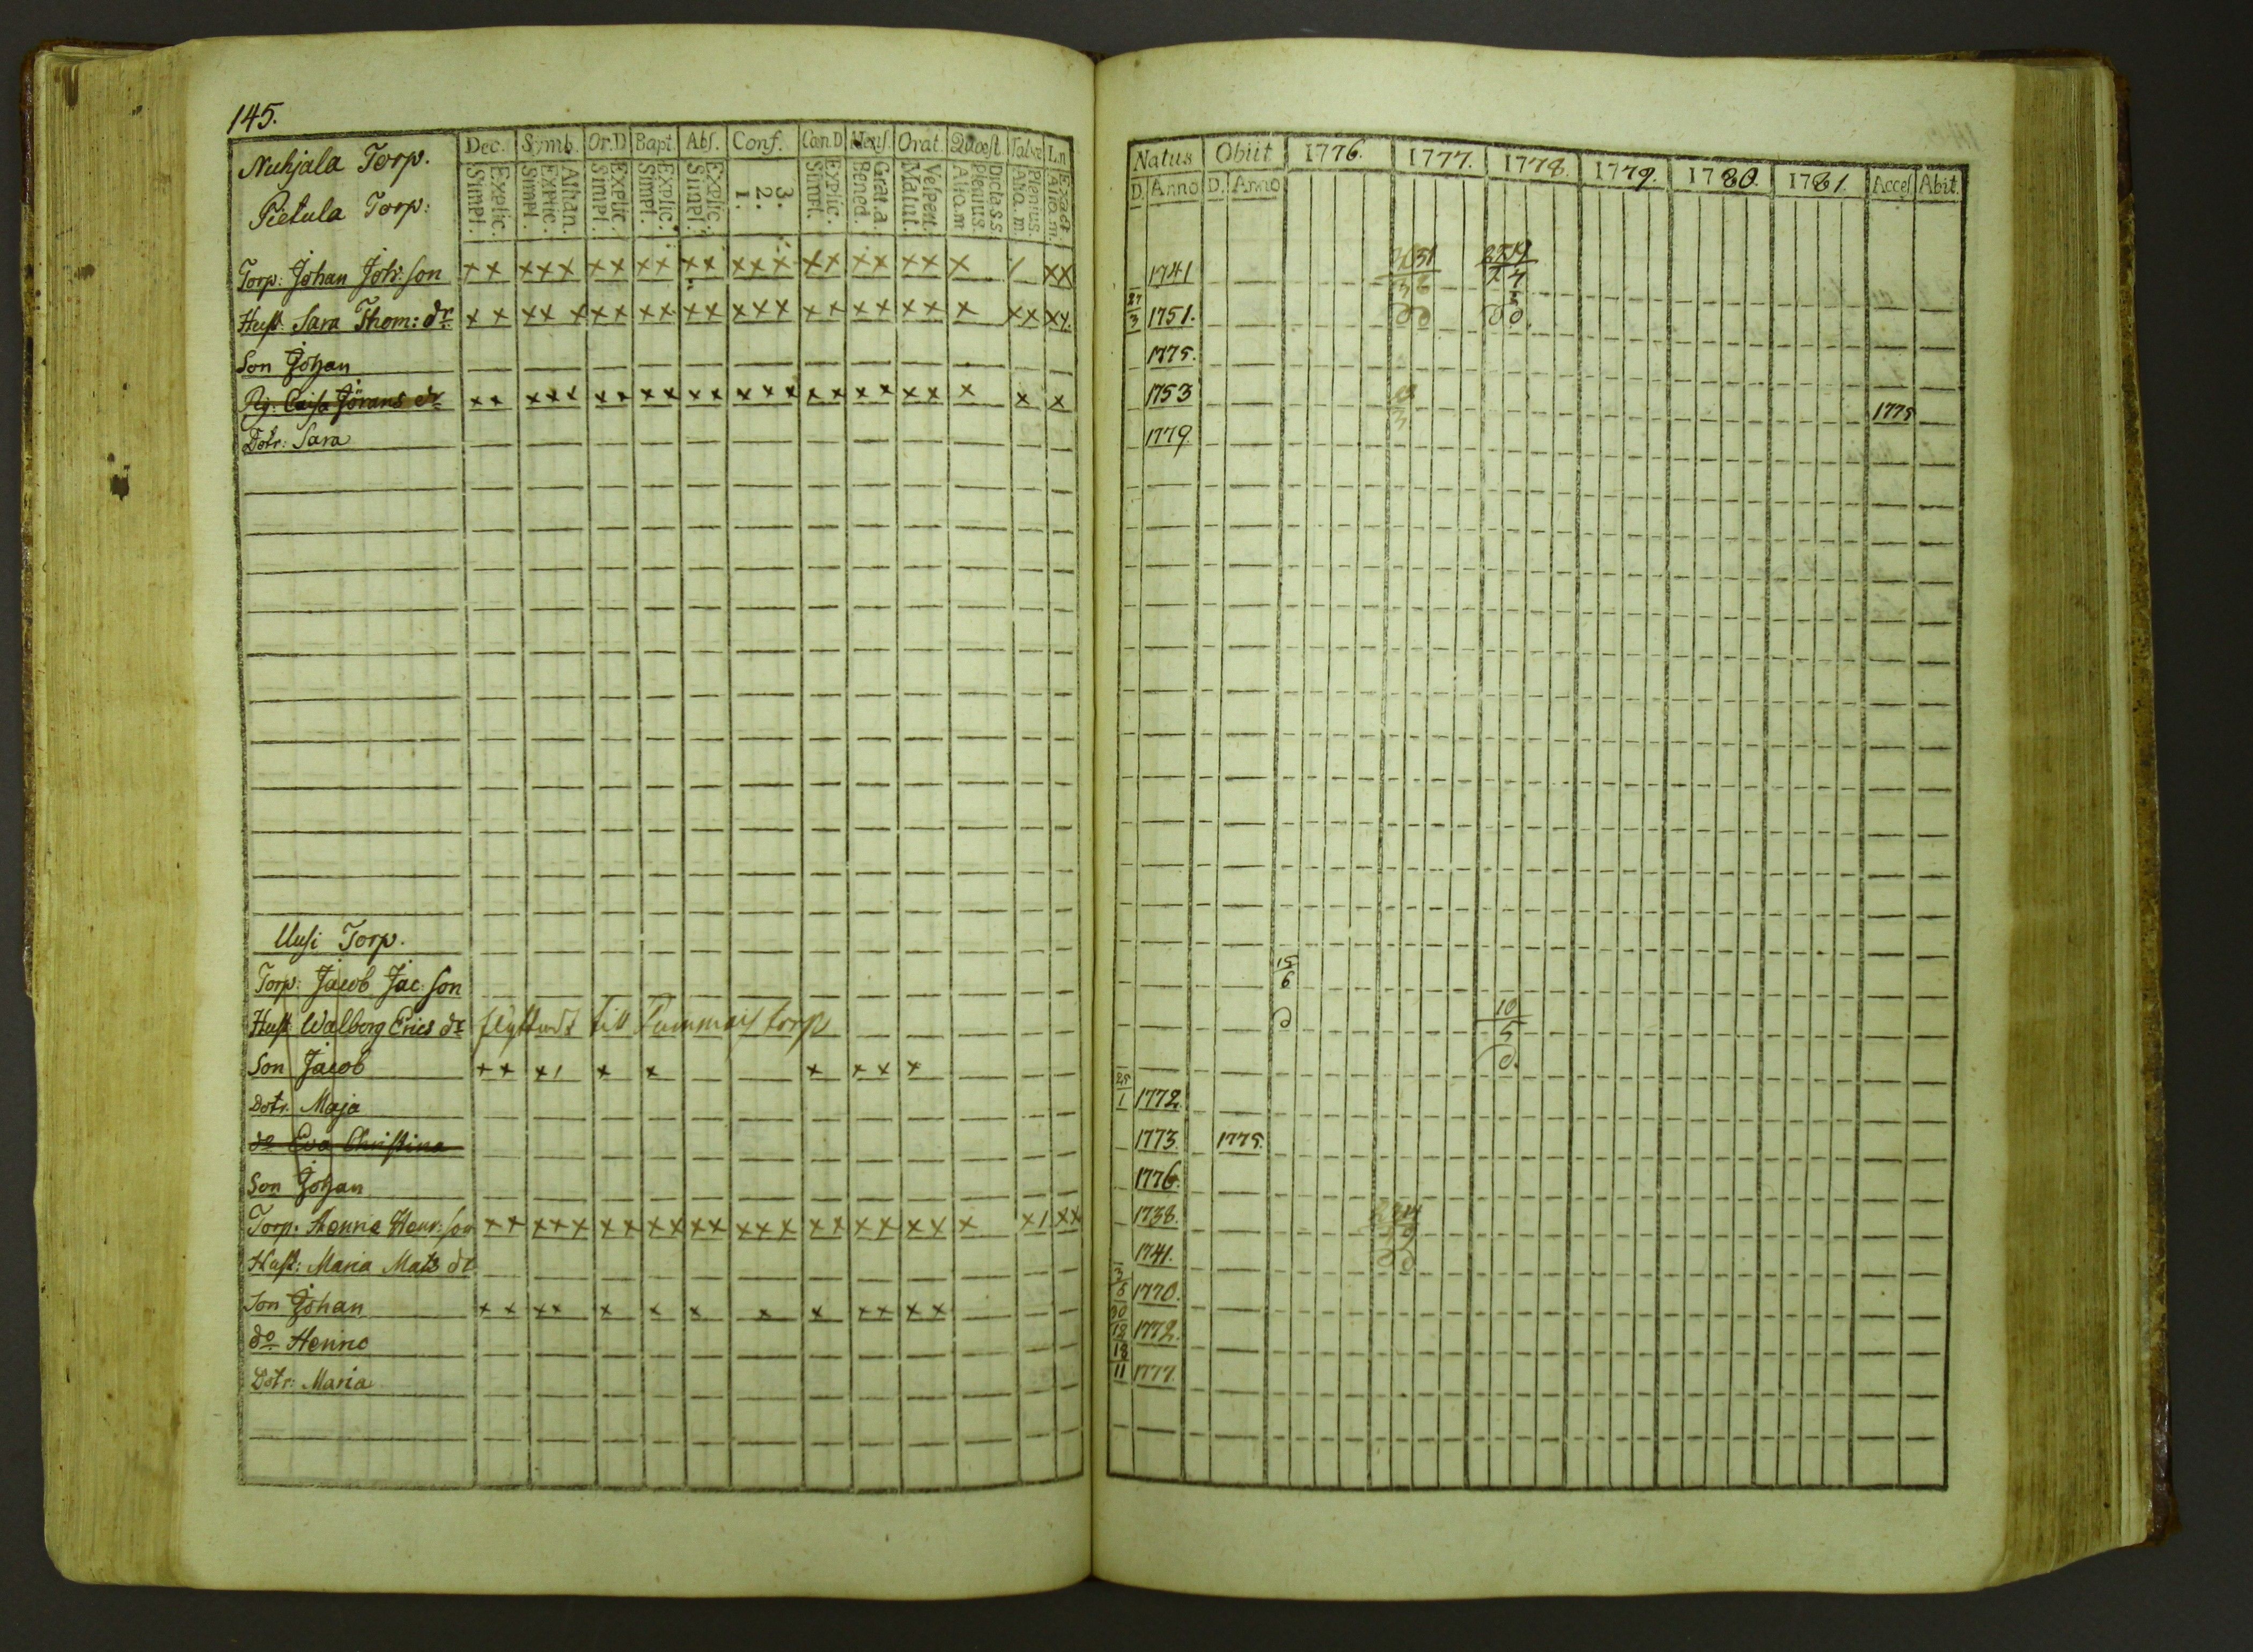 145.
Nuhjala Torp.
Pietula Torp:
Dec. Symb. Or.D Bapt. Abs. Conf. Can.D Mens. Orat. Quaest. Tab. L.n
Simpl. Explic. Simpl. Explic. Athan. Simpl. Explic. Simpl. Explic. Simpl. Explic. 1. 2. 3. Simpl. Explic. Bened. Grat.a. Matut. Vespert. Aliq.m Plenius. Dicta.s.s. Aliq.m Plenius. Aliq.m. Exact
Torp: Johan Joh: son ×× ××× ×× ×× ×× ××× ×× ×× ×× × / ××
Hust: Sara Thom: dr ×× ××× ×× ×× ×× ××× ×× ×× ×× × ×× ××
Son Johan
Pig: Caisa Jörans dr ×× ××× ×× ×× ×× ××× ×× ×× ×× × × ×
Dotr: Sara
Uusi Torp.
Torp: Jacob Jac: son
Hust: Walborg Erics dr flyttadt till torp
Son Jacob ×× ×/ × × × ×× ×
Dotr. Maja
do Eva Christina
Son Johan
Torp: Henric Henr: son ×× ××× ×× ×× ×× ××× ×× ×× ×× × ×/ ××
Hust: Maria Mats dr
Son Johan ×× ×× × × × × × ×× ××
do Henric
Dotr: Maria
Natus Obiit 1776. 1777. 1778. 1779. 1780. 1781. Acces. Abit.
D. Anno D. Anno
1741
27/3 1751.
1775.
1753 1775
1779
15/6
10/5
25/1 1772.
1773. 1775.
1776.
1738.
1741.
3/8 1770.
30/12 1772.
18/11 1777.